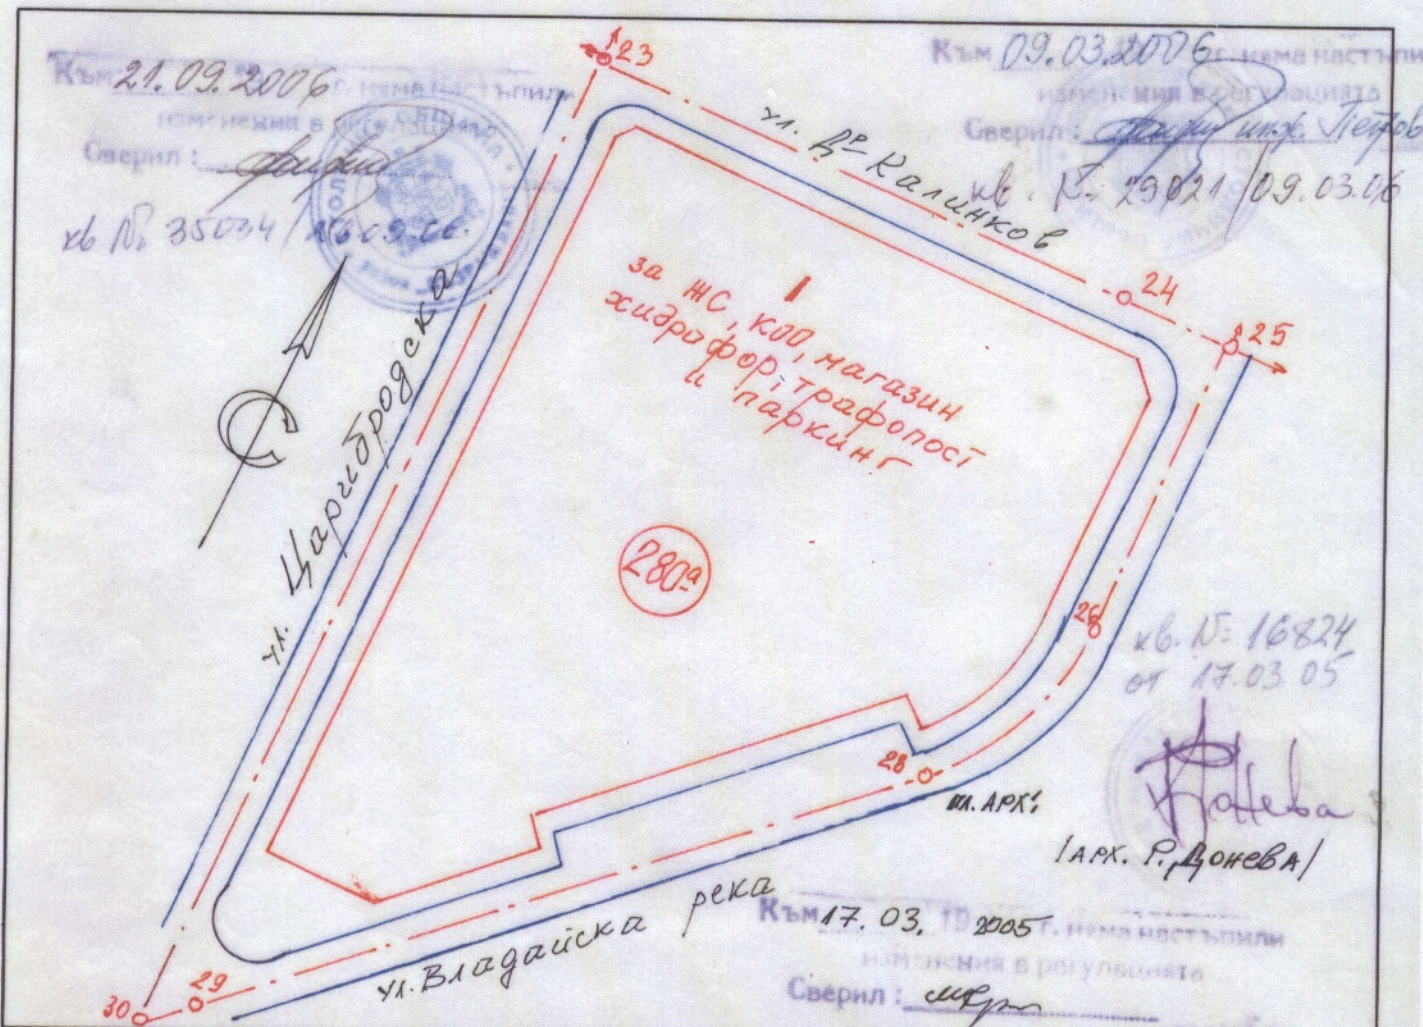 Към 21.09.2006 г. няма настъпили
изменения в регулацията
Сверил:
кв № 35034/
Към 09.03.2006 г. няма настъпи
изменения в регулацията
Сверил: инж. Петров
кв. № 29021/09.03.06
23
ул. Др Калинков
24
25
I
за ЖС, КОО, магазин
хидрофор, трафопост
и паркинг
ул. Царибродска
280а
26
кв. № 16824
от 17.03.05
28
гл. АРХ:
Донева
/АРХ. Р. Донева/
ул. Владайска река
Към 17.03. 19 2005 г. няма настъпили
изменения в регулацията
Сверил:
29
30